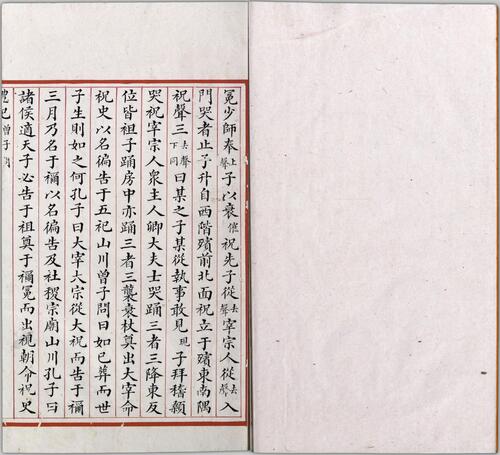 冕少師奉上聲子以衰催祝先子從去聲宰宗人從去聲入
門哭者止子升自西階殯前北面祝立于殯東南隅
祝聲三去聲下同曰某之子某從執事敢見現子拜稽顙
哭祝宰宗人衆主人卿大夫士哭踊三者三降東反
位皆袒子踊房中亦踊三者三襲衰杖奠出大宰命
祝史以名徧告于五祀山川曾子問曰如已葬而世
子生則如之何孔子曰大宰大宗從大祝而告于禰
三月乃名于禰以名徧告及社稷宗廟山川孔子曰
諸侯適天子必告于祖奠于禰冕而出視朝命祝史
禮記 曾子問